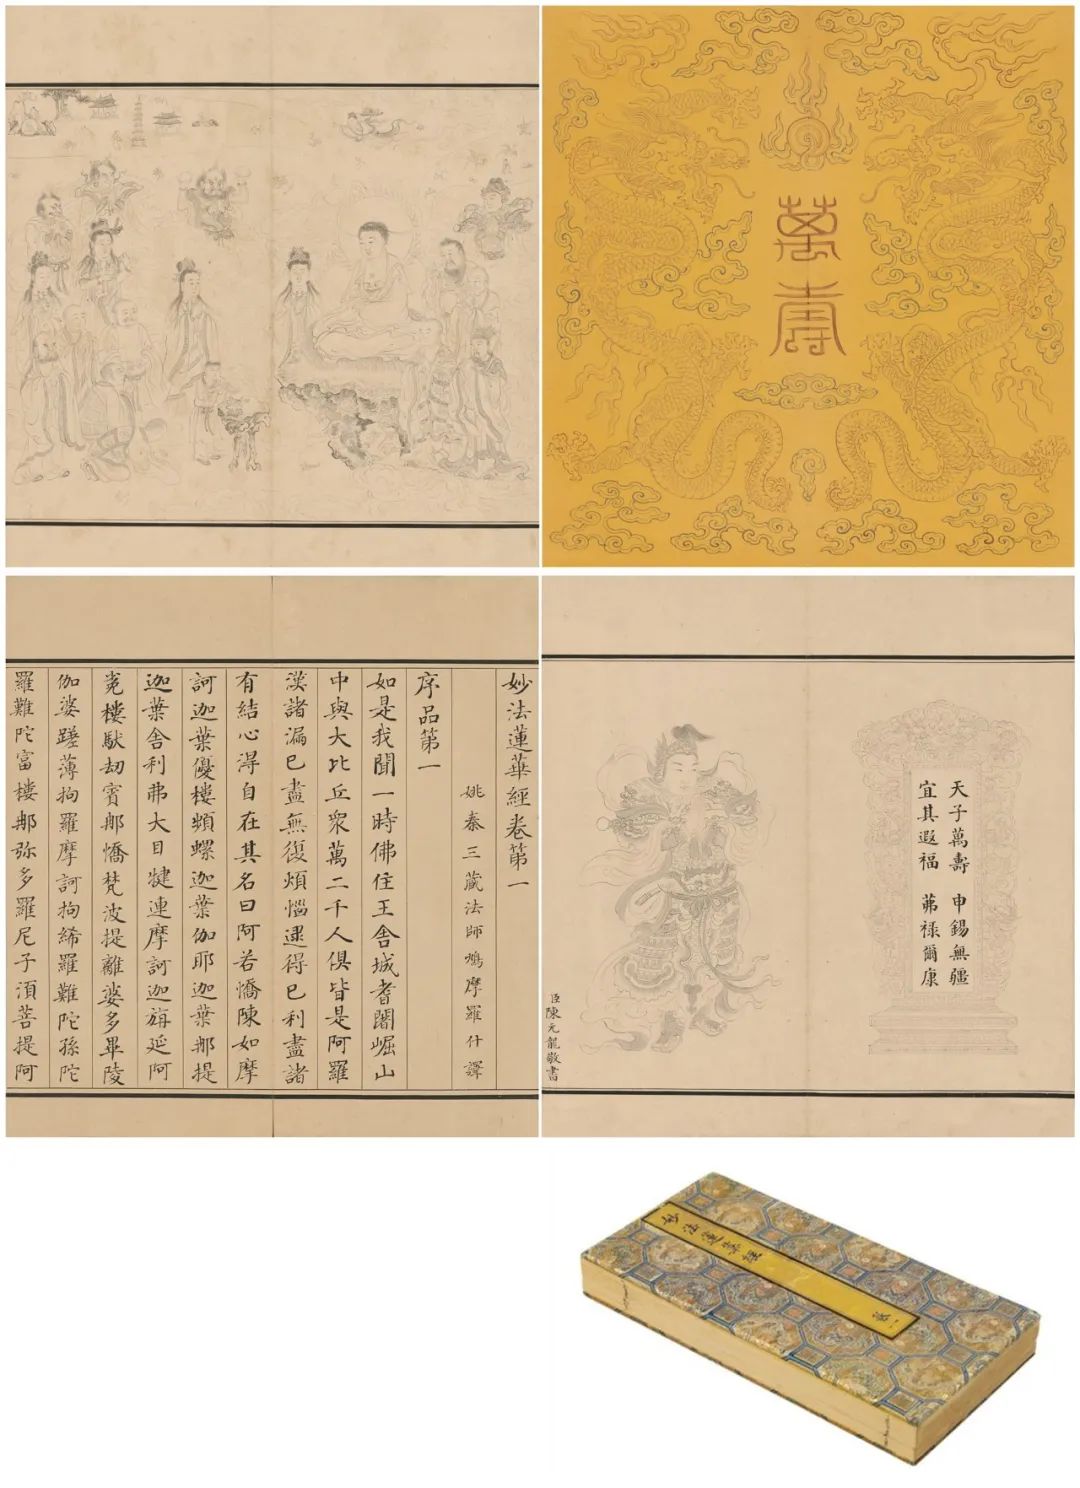 萬壽
妙法蓮華經卷第一
姚秦三藏法師鳩摩羅什譯
序品第一
如是我聞一時佛住王舍城耆闍崛山
中與大比丘衆萬二千人俱皆是阿羅
漢諸漏已盡無復煩惱逮得己利盡諸
有結心淂自在其名曰阿若憍陳如摩
訶迦葉優樓頻螺迦葉伽耶迦葉那提
迦葉舍利弗大目犍連摩訶迦旃延阿
㝹樓馱劫賓那憍梵波提離婆多畢陵
伽婆蹉薄拘羅摩訶拘絺羅難陀孫陀
羅難陀富樓那弥多羅尼子湏菩提阿
天子萬壽 申錫無疆
宜其遐福 茀祿爾康
臣陳元龍敬書
妙法蓮華經